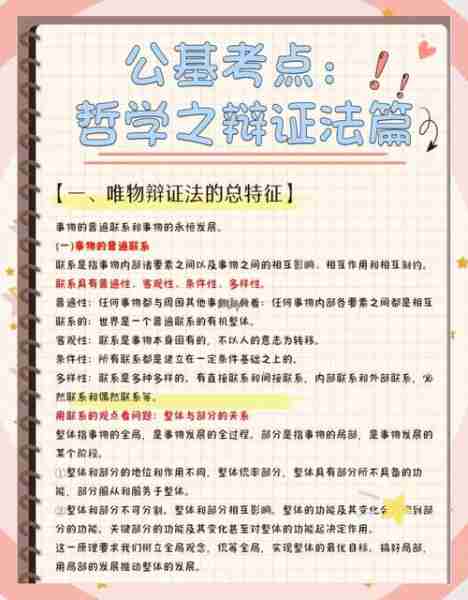 公基考点：
哲学之辩证法篇
【一、唯物辩证法的总特征】
事物的普遍联系和事物的永恒发展。
(一)事物的普遍联系
联系是指事物内部诸要素之间以及事物之间的相互影响、相互作用和相互制约。
联系具有普遍性、客观性、条件性、多样性。
普遍性：任何事物都与周围其他事物联系着：任何事物内部各要素之间都是相互
联系的：世界是一个普遍联系的有机整体。
客观性：联系是事物本身固有的，不以人的意志为转移。
条件性：所有联系都是建立在一定条件基础之上的。
多样性：联系是多种多样的。有直接联系和间接联系，内部联系和外部联系，必
然联系和偶然联系等。
用联系的观点看问题：整体与部分的关系
整体指事物的全局，是事物发展的全过程。部分是指事物的局部，是事物发展的
某个阶段。
①整体和部分的地位和作用不同，整体统率部分，整体具有部分所不具备的功
能，部分服从和服务于整体。
②整体和部分不可分割，整体和部分相互影响。整体的功能及其变化会 到部
分的功能，关键部分的功能及其变化甚至对整体的功能起决定作用。
这一原理要求我们树立全局观念，统筹全局，实现整体的最优目标，搞好局部，
用局部的发展推动整体的发展。